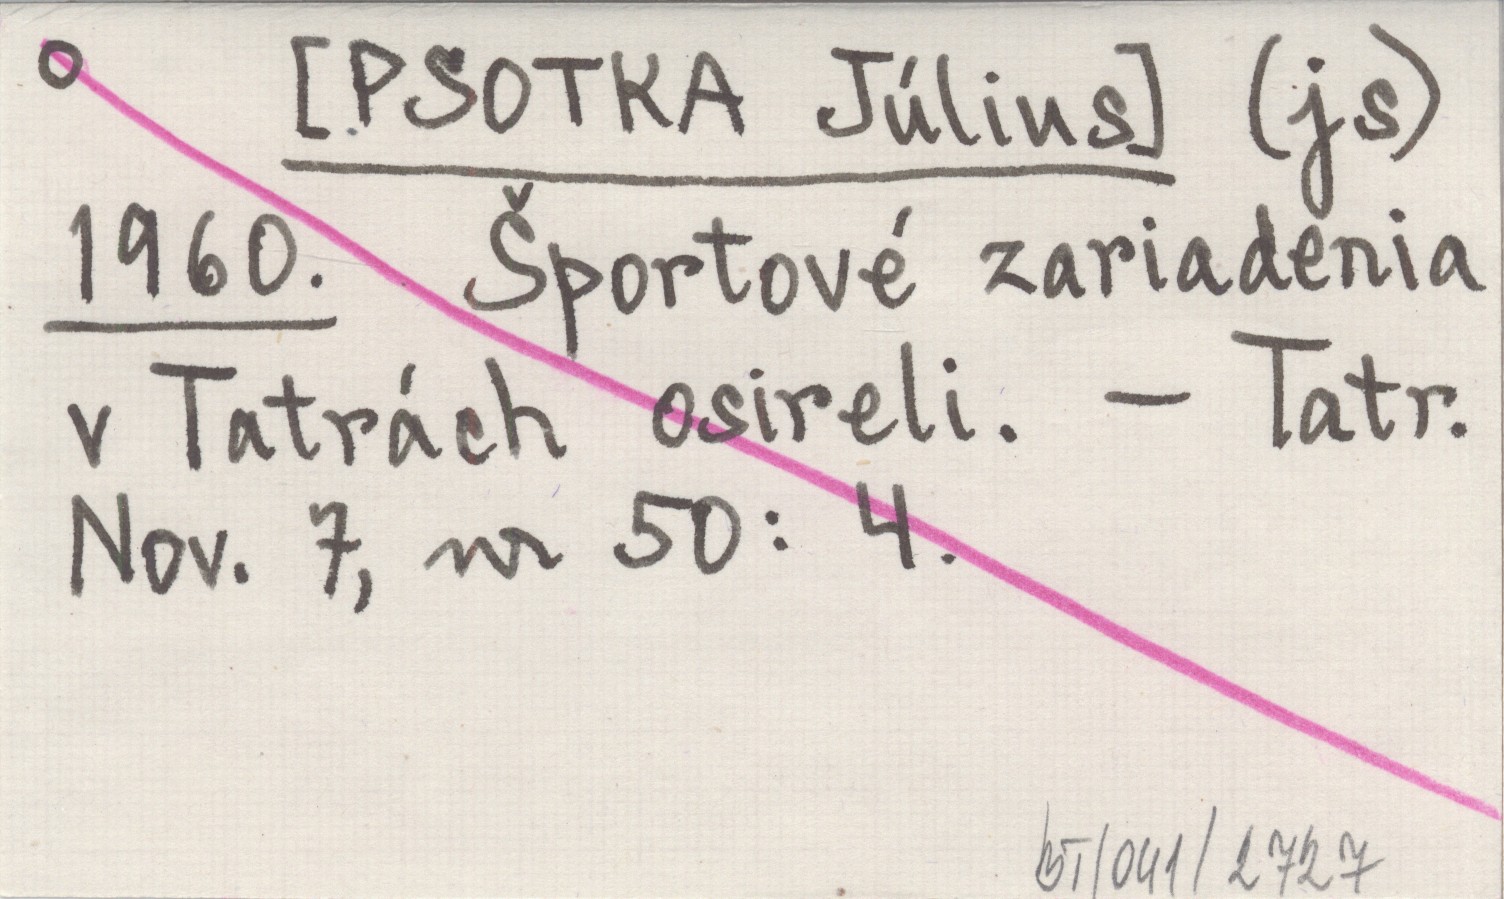 o [PSOTKA Július] (js)
1960. Športové zariadenia
v Tatrách osireli. – Tatr.
Nov. 7, nr 50: 4.
BT/041/2727